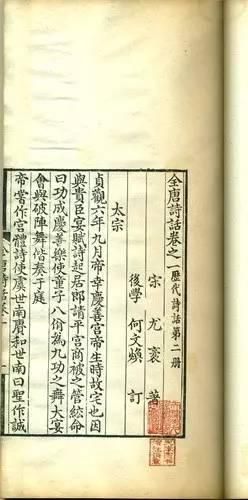 全唐詩話卷之一 歷代詩話第二册
宋 尤袤 著
後學 何文煥 訂
太宗
貞觀六年九月帝幸慶善宮帝生時故宅也因
與貴臣宴賦詩起居郎請平宮商被之管絃命
曰功成慶善樂使童子八佾為九功之舞大宴
會與破陣舞偕奏于庭
帝嘗作宮體詩使虞世南賡和世南曰聖作誠